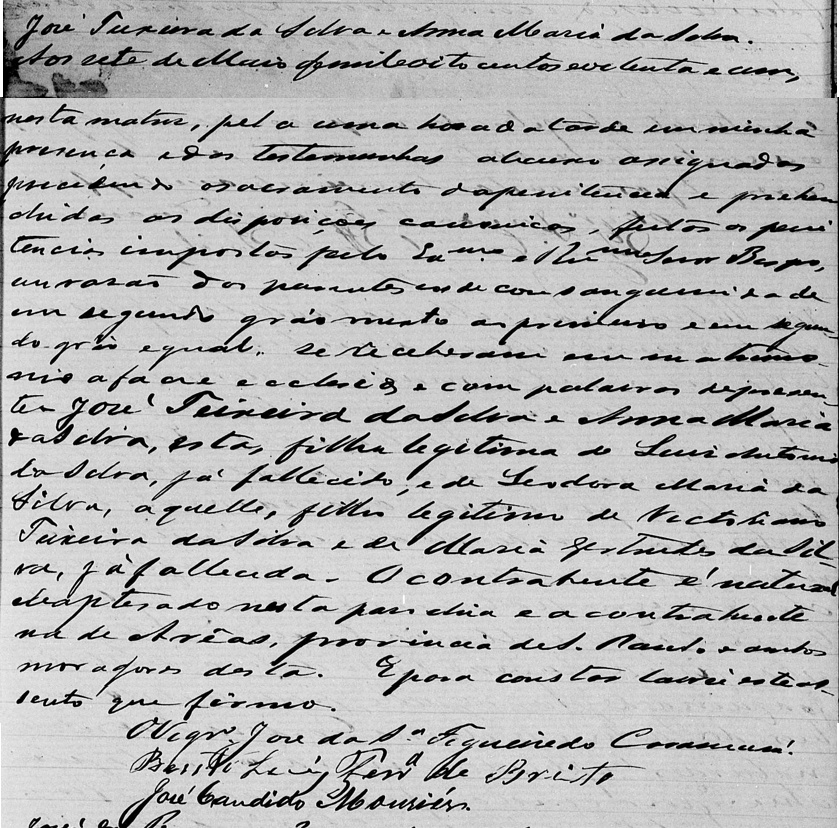 José Teixeira da Silva e Anna Maria da Silva.
Aos sete de Maio de mil e oito centos e oitenta e um,
nesta matriz, pela uma hora da tarde em minha
presença e das testemunhas abaixo assignadas
precedendo o sacramento da penitencia e prehen
chidas as disposições canonicas, feitas as peni
tencias impostas pelo Exmo e Rvmo Snor Bispo,
em razão dos parentescos de consanguinidade
em segundo gráo mixto ao primeiro e em segun
do gráo egual. se receberam em matrimo
nio a facie ecclesiæ e com palavras de presen
te José Teixeira da Silva e Anna Maria
da Silva, esta, filha legitima de Luis Antonio
da Silva, já fallecido, e de Leodora Maria da
Silva, aquelle, filho legitimo de Victoriano
Teixeira da Silva e de Maria Gertrudes da Sil
va, já fallecida. O contrahente é natural
e baptisado nesta parochia e a contrahente
na de Arêas, provincia de S. Paulo e ambos
moradores desta. E para constar lavrei este as
sento que firmo.
O Vigr. José da Sª Figueiredo Caramurú.
Bento Luiz Ferrª de Britto
José Candido
José